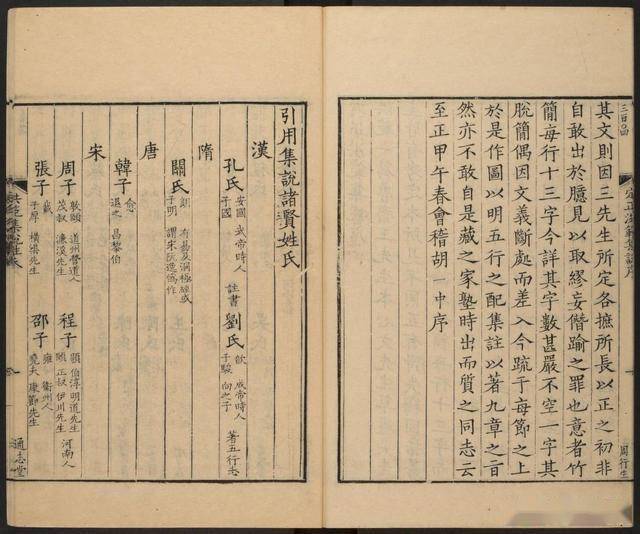 三百〇四
其文則因三先生所定各摭所長以正之初非
自敢出於臆見以取繆妄僭踰之罪也意者竹
簡每行十三字今詳其字數甚嚴不空一字其
脫簡偶因文義斷處而差入今疏于每節之上
於是作圖以明五行之配集註以著九章之言
然亦不敢自是藏之家塾時出而質之同志云
至正甲午春會稽胡一中序
周行生
引用集說諸賢姓氏
漢
孔氏 安國 武帝時人 註書
子國
劉氏 歆 成帝時人 著五行志
子駿 向之子
隋
關氏 朗 有易及洞極經或
子明 謂宋阮逸僞作
唐
韓子 愈
退之 昌黎伯
宋
周子 敦頤 道州營道人
茂叔 濂溪先生
程子 顥 伯淳 明道先生 河南人
頤 正叔 伊川先生
張子 載
子厚 橫渠先生
邵子 雍 衛州人
堯夫 康節先生
通志堂